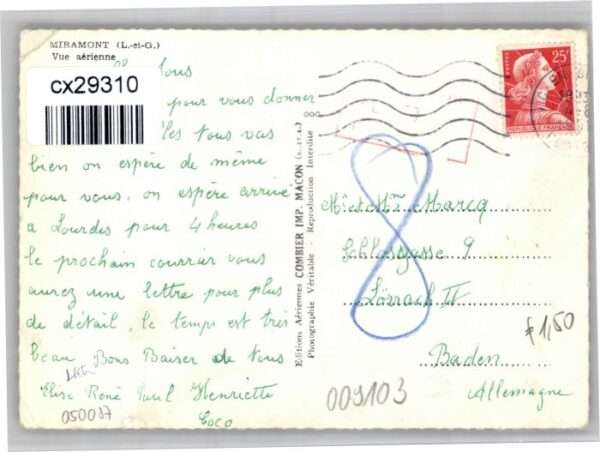 MIRAMONT (L.-et-G.)
Vue aérienne
cx29310
Tous
pour vous donner
tous vas
bien on espère de même
pour vous. on espère arrivé
a Lourdes pour 4 heures
le prochain courrier vous
aurez une lettre pour plus
de détail. le temps est très
beau Bons Baiser de tous
Elise René Paul Henriette
Coco
050087
Editions Aériennes COMBIER IMP. MACON (S.-et-L.)
Photographie Véritable - Reproduction Interdite
25F
POSTES
REPUBLIQUE FRANÇAISE
8
Mr et Mme Marcq
Schlossgasse 9
Lörrach II
Baden
Allemagne
1,50
009103